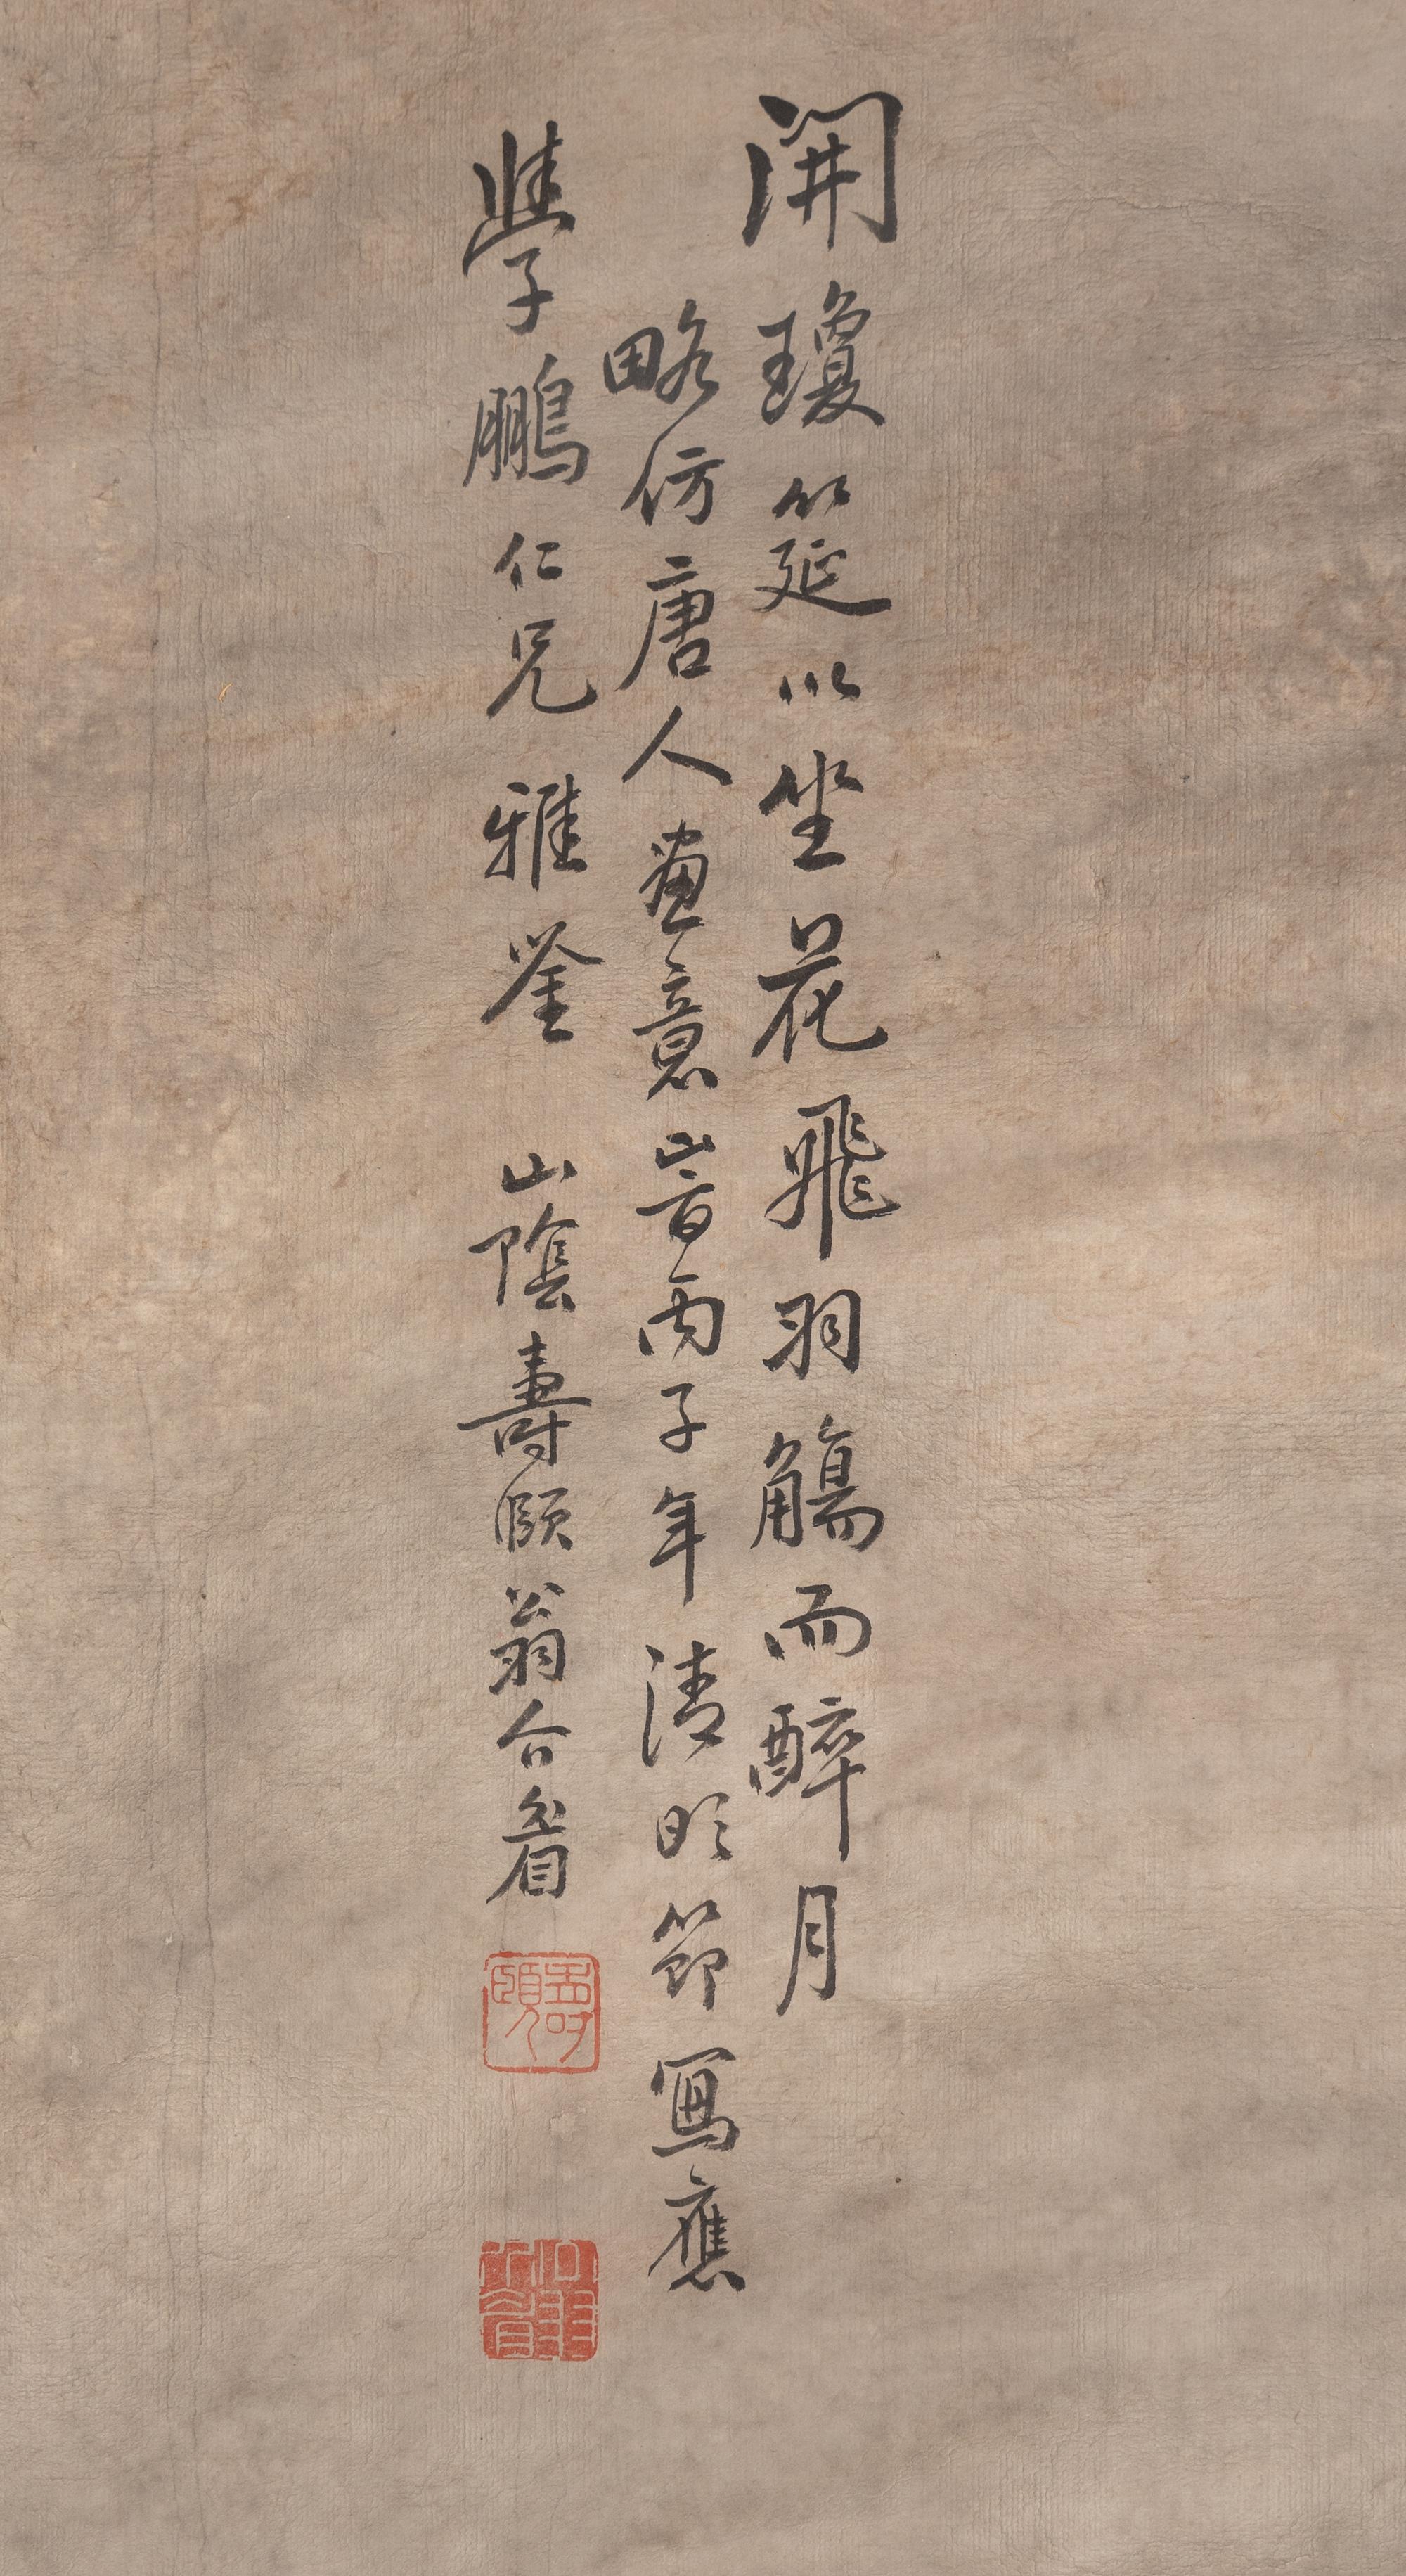 開瓊筵以坐花飛羽觴而醉月
略仿唐人畫意峕丙子年清明節寫應
學鵬仁兄雅鉴 山陰壽頤翁合眷
壽頤